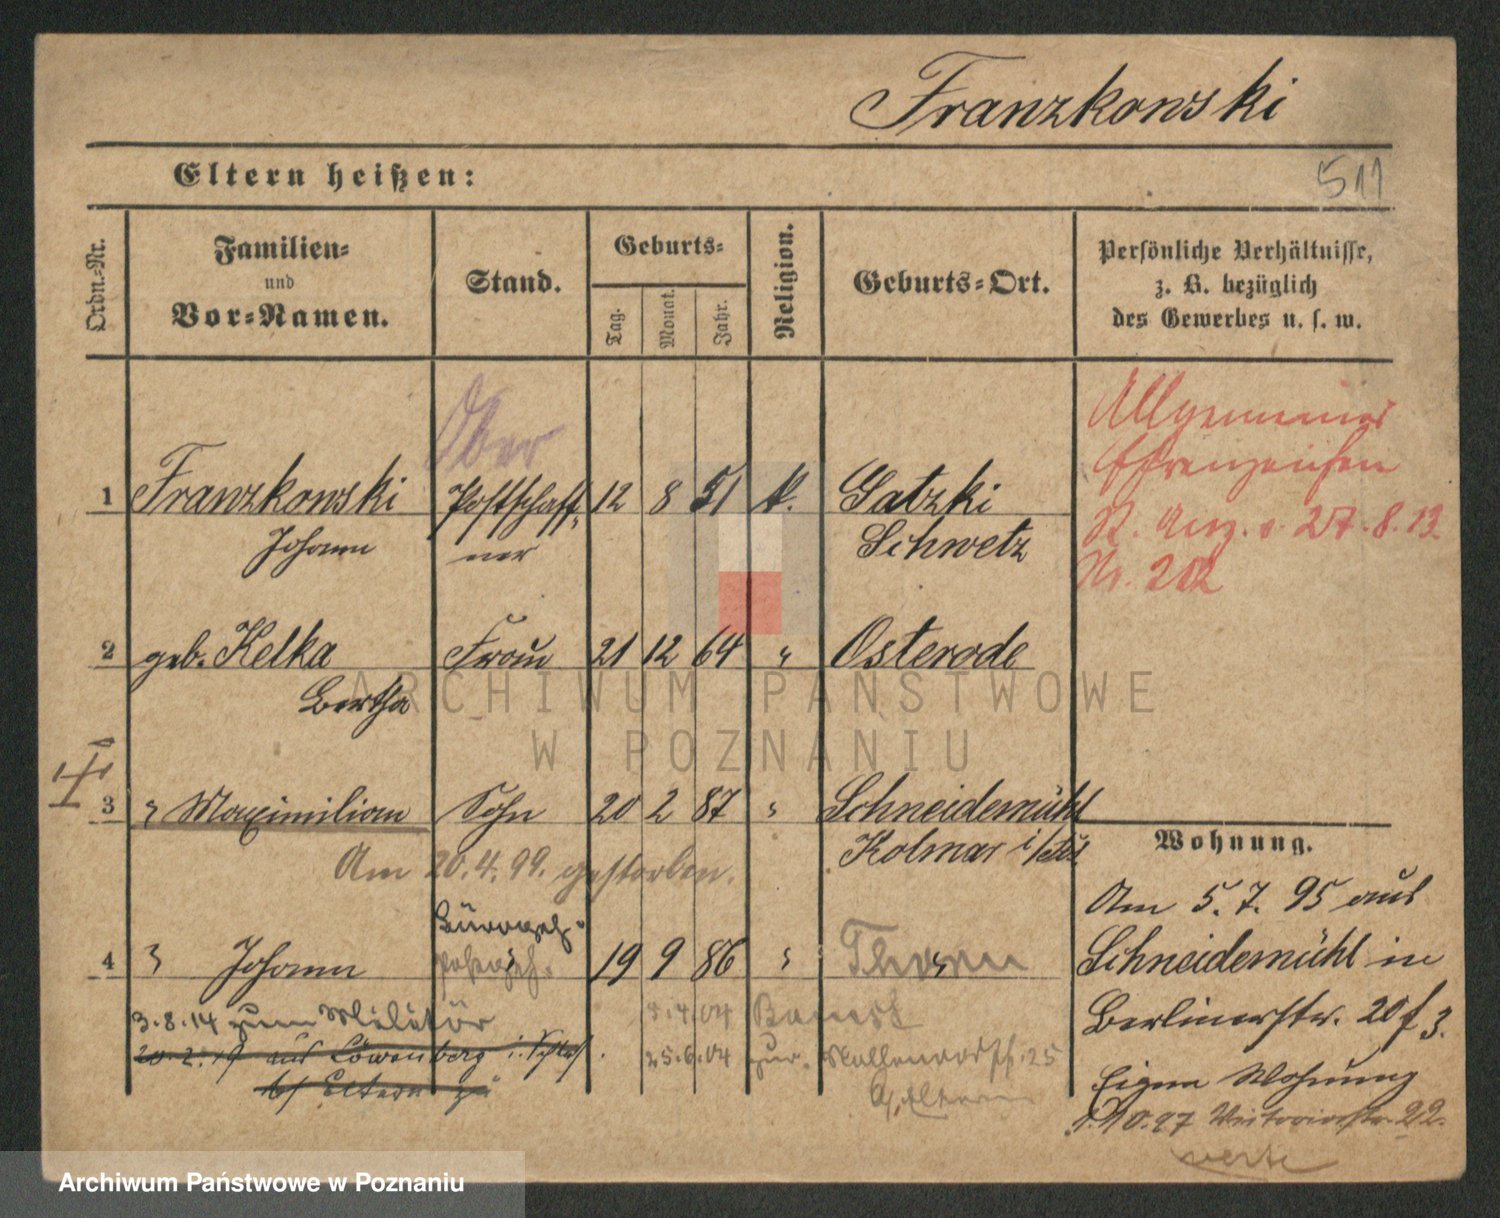 Franzkowski
511
Eltern heißen:
Ordn.-Nr.
Familien-
und
Vor-Namen.
Stand.
Geburts-
Tag.
Monat.
Jahr.
Religion.
Geburts-Ort.
Persönliche Verhältnisse,
z. B. bezüglich
des Gewerbes u. s. w.
Allgemeines
Ehrenzeichen
R. Anz. v. 27.8.13
Nr. 202
Ober
1 Franzkowski Postschaff- 12 8 51 k. Gatzki
Johann ner Schwetz
2 geb. Kelka Frau 21 12 64 " Osterode
Bertha
3 " Maximilian Sohn 20 2 87 " Schneidemühl
Kolmar i/
Am 20.4.99. gestorben.
4 " Johann 19 9 86 " Thorn
3.8.14 zum Militär
20.2.19 aus Löwenberg i. Schles.
b/ Eltern zu
5.4.04
25.6.04 zur. 25
Eltern
Wohnung.
Am 5.7.95 aus
Schneidemühl in
Berlinerstr. 20 f 3.
Eigene Wohnung
1.10.97 Victoriastr. 22.
verte
ARCHIWUM PAŃSTWOWE
W POZNANIU
Archiwum Państwowe w Poznaniu